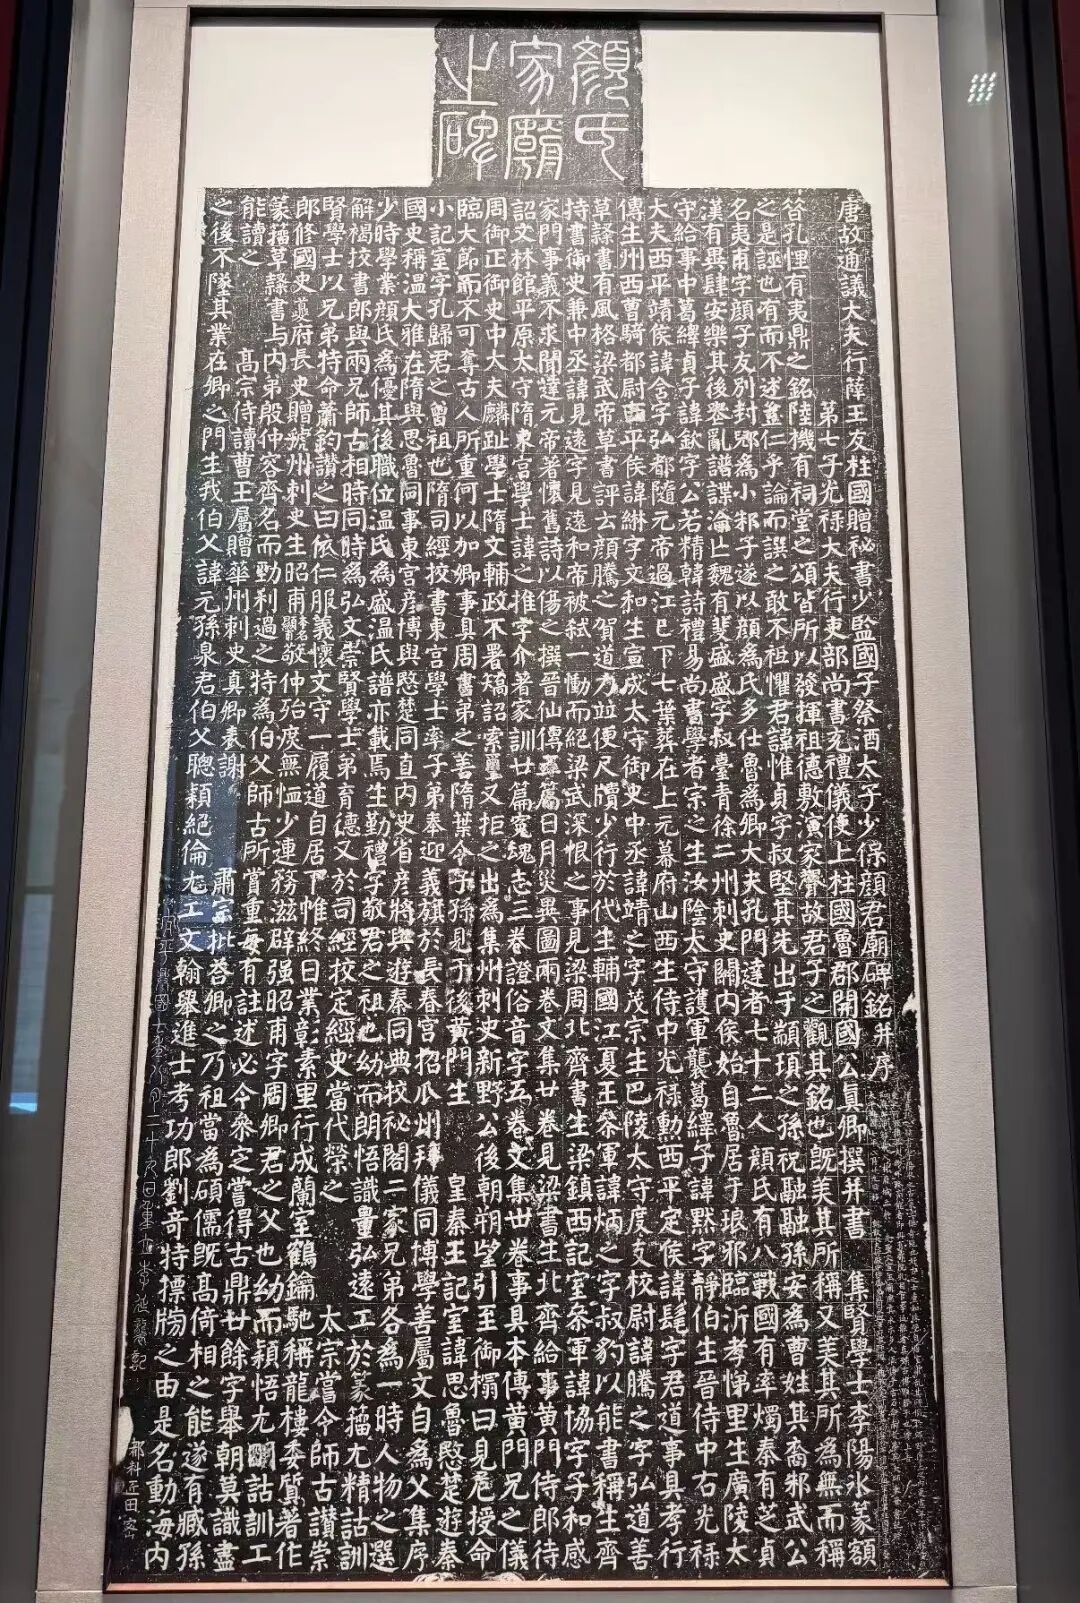 顏氏
家廟
之碑
唐故通議大夫行薛王友柱國贈秘書少監國子祭酒太子少保顏君廟碑銘并序
第七子光祿大夫行吏部尚書充禮儀使上柱國魯郡開國公真卿撰并書 集賢學士李陽冰篆額
昔孔悝有夷鼎之銘陸機有祠堂之頌皆所以發揮祖德敷演家聲故君子之觀其銘也既美其所稱又美其所為無而稱
之是誣也有而不述豈仁乎論而譔之敢不祖懼君諱惟貞字叔堅其先出于顓頊之孫祝融融孫安為曹姓其裔邾武公
名夷甫字顏子友別封郳為小邾子遂以顏為氏多仕魯為卿大夫孔門達者七十二人顏氏有八戰國有率燭秦有芝貞
漢有異肆安樂其後喪亂譜諜淪亡魏有斐盛盛字叔臺青徐二州刺史關內侯始自魯居于琅邪臨沂孝悌里生廣陵太
守給事中葛繹貞子諱欽字公若精韓詩禮易尚書學者宗之生汝陰太守護軍襲葛繹子諱默字靜伯生晉侍中右光祿
大夫西平靖侯諱含字弘都隨元帝過江已下七葉葬在上元幕府山西生侍中光祿勳西平定侯諱髦字君道事具孝行
傳生州西曹騎都尉西平侯諱綝字文和生宣成太守御史中丞諱靖之字茂宗生巴陵太守度支校尉諱騰之字弘道善
草隸書有風格梁武帝草書評云顏騰之賀道力並便尺牘少行於代生輔國江夏王參軍諱炳之字叔豹以能書稱生齊
持書御史兼中丞諱見遠字見遠和帝被弒一慟而絕梁武深恨之事見梁周北齊書生梁鎮西記室參軍諱協字子和感
家門事義不求聞達元帝著懷舊詩以傷之撰晉仙傳五篇日月災異圖兩卷文集廿卷見梁書生北齊給事黃門侍郎待
詔文林館平原太守隋東宮學士諱之推字介著家訓廿篇冤魂志三卷證俗音字五卷文集卅卷事具本傳黃門兄之儀
周御正御史中大夫麟趾學士隋文輔政不署矯詔索璽又拒之出為集州刺史新野公後朝朔望引至御榻曰見危授命
臨大節而不可奪古人所重何以加卿事具周書弟之善隋葉令子孫見于後黃門生 皇秦王記室諱思魯愍楚遊秦
小記室字孔歸君之曾祖也隋司經校書東宮學士率子弟奉迎義旗於長春宮招瓜州拜儀同博學善屬文自為父集序
國史稱溫大雅在隋與思魯同事東宮彥博與愍楚同直內史省彥將與遊秦同典校秘閣二家兄弟各為一時人物之選
少時學業顏氏為優其後職位溫氏為盛溫氏譜亦載焉生勤禮字敬君之祖也幼而朗悟識量弘遠工於篆籀尤精詁訓
解褐校書郎與兩兄師古相時同時為弘文崇賢學士弟育德又於司經校定經史當代榮之 太宗嘗令師古讚崇
賢學士以兄弟特命蕭鈞讚之曰依仁服義懷文守一履道自居下帷終日業彰素里行成蘭室鶴鑰馳稱龍樓委質著作
郎修國史夔府長史贈虢州刺史生昭甫本名顯甫敬仲殆庶無恤少連務滋辟強昭甫字周卿君之父也幼而穎悟尤明詁訓工
篆籀草隸書与內弟殷仲容齊名而勁利過之特為伯父師古所賞重每有註述必令參定嘗得古鼎廿餘字舉朝莫識盡
能讀之 高宗侍讀曹王屬贈華州刺史真卿表謝 肅宗批荅卿之乃祖當為碩儒既高倚相之能遂有臧孫
之後不隊其業在卿之門生我伯父諱元孫泉君伯父聰穎絕倫尤工文翰舉進士考功郎劉奇特摽牓之由是名動海內